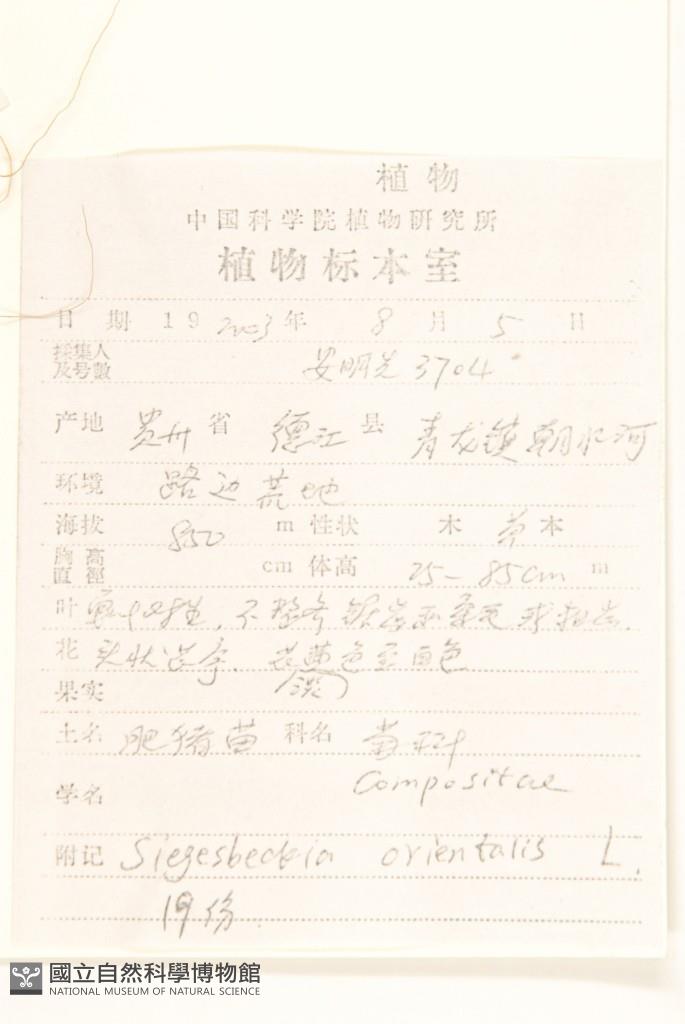 植物
中国科学院植物研究所
植物标本室
日期 19 2003年 8 月 5 日
採集人及号數 安明先 3704
产地 贵州 省 德江 县 青龙镇朝水河
环境 路边荒地
海拔 850 m 性状 木 草 本
胸高直徑 cm 体高 25-85cm m
叶 对生, 不整齐锯齿
花 头状花序, 花黄色至白色
果实
土名 肥猪苗 科名 菊科
Compositae
学名
附记 Siegesbeckia orientalis L.
19份
國立自然科學博物館
NATIONAL MUSEUM OF NATURAL SCIENCE